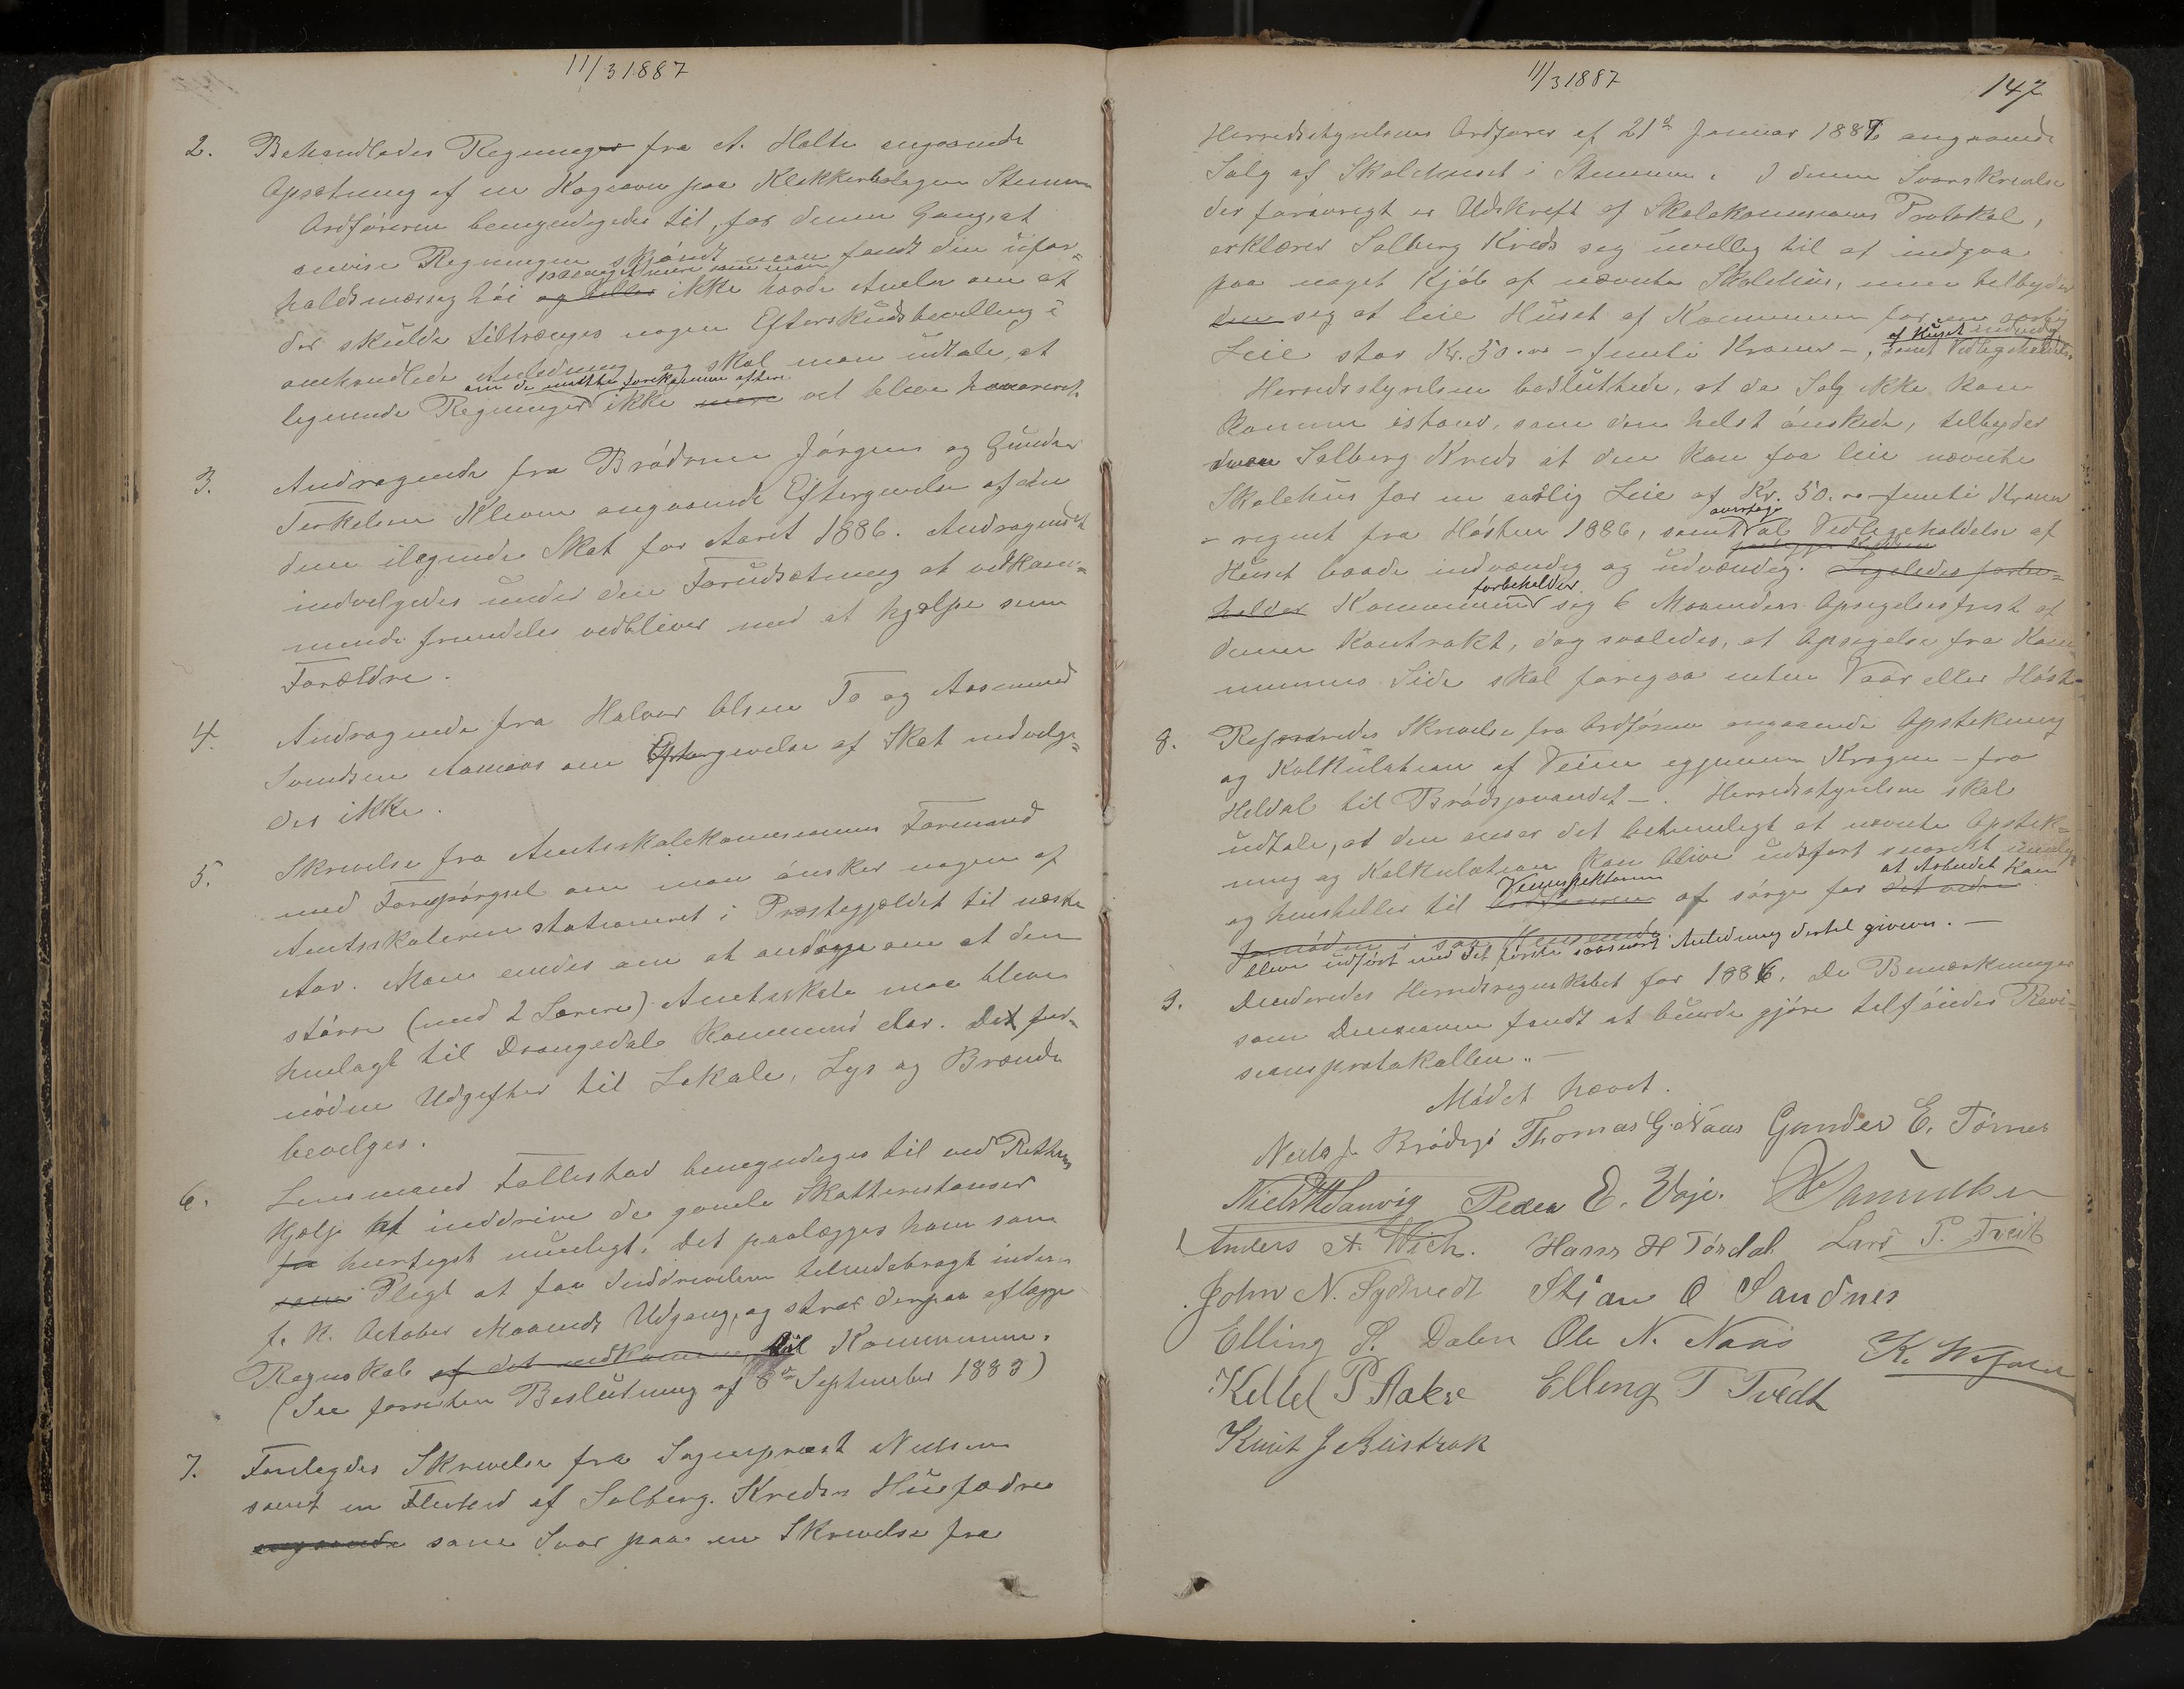 11/3 1887
2. Behandledes Regninger fra A. Holte angaaende
Opsætning af en Kogeovn paa Klokkerboligen Stemmen
Ordføreren bemyndigedes til, for denne Gang, at
anvise Regningen skjøndt man fandt den ufor-
saameget mere som man
holdsmæssig høi og heller ikke havde Anelse om at
der skulde tiltrænges nogen Efterskudsbevilling i
omhandlede Anledning og skal man udtale, at
om de maatte forekomme oftere
lignende Regninger ikke mere vil blive honoreret.
3. Andragende fra Brødrene Jørgen og Gunder
Terkelsen Kleven angaaende Eftergivelse af den
dem ilignede Skat for Aaret 1886. Andragendet
indvilgedes under den Forudsætning at vedkom-
mende fremdeles vedbliver med at hjælpe sine
Forældre.
4. Andragende fra Halvor Olsen To og Aasmund
Svendsen Aamaas om Eftergivelse af Skat indvilge-
des ikke.
5. Skrivelse fra Amtsskolekommissionens Formand
med Forespørgsel om man ønsker nogen af
Amtsskolerne stationeret i Præstegjældet til næste
Aar. Man enedes om at andrage om at den
større (med 2 Lærere) Amtsskole maa blive
henlagt til Drangedal Kommune i Aar. De for-
nødne Udgifter til Lokale, Lys og Brænde
bevilges.
6. Lensmand Tollestad bemyndiges til ved Rettens
Hjælp at inddrive de gamle Skatterestancer
saa hurtigst muligt. Det paalægges ham som
som Pligt at faa Inddrivelsen tilendebragt inden
f. K. October Maaneds Udgang, og strax derpaa aflægge
Regnskab af det indkomne til Kommunen.
(See forøvrigt Beslutning af 8de September 1883)
7. Forelagdes Skrivelse fra Sogneprest Nielsen
samt en Flerhed af Solberg Kredses Husfædre
angaaende som Svar paa en Skrivelse fra
11/3 1887
147
Herredsstyrelsens Ordfører af 21de Januar 1887 angaaende
Salg af Skolehuset i Stemmen. I denne Svarskrivelse
der forøvrigt er Udskrift af Skolekommissionens Protokol,
erklærer Solberg Kreds sig uvillig til at indgaa
paa noget Kjøb af nævnte Skolehus, men tilbyder
den sig at leie Huset af Kommunen for en aarlig
af Huset indvendig
Leie stor Kr. 50.00 - femti Kroner -, samt Vedligeholdelse
Herredsstyrelsen besluttede, at da Salg ikke kan
komme istand, som den helst ønskede, tilbydes
Solberg Kreds at den kan faa leie nævnte
Skolehus for en aarlig Leie af Kr. 50.00 femti Kroner
overtage
- regnet fra Høsten 1886, samt al Vedligeholdelse af
Huset baade indvendig og udvendig. Ligeledes forbe-
forbeholder
holder Kommunen sig 6 Maaneders Opsigelsesfrist af
denne Kontrakt, dog saaledes, at Opsigelse fra Kom-
munens Side skal foregaa enten Vaar eller Høst.
8. Refereredes Skrivelse fra Ordføreren angaaende Opstikning
og Kalkulation af Veien igjennem Kragen - fra
Heldal til Brødsjøvandet -. Herredsstyrelsen skal
udtale, at den anser det betimeligt at nævnte Opstik-
ning og Kalkulation kan blive udført snarest muligt
Veiinspektøren at Arbeidet kan
og henstiller til Ordføreren at sørge for det videre
fornødne i saa Henseende
blive udført med det første saasnart Anledning dertil gives. -
9. Decideredes Herredsregnskabet for 1886. De Bemærkninger
som Decisionen fandt at burde gjøre tilføiedes Revi-
sionsprotokollen. -
Mødet hævet.
Niels J. Brødsjø Thomas G. Naas Gunder E. Tørnes
Niels H Sanvig Peder E. Voje.
Anders A. Wich. Hans H Tørdal Lars P. Tveit
John N. Sydtvedt Stian O Sandnes
Elling P. Dalen Ole N. Naas
Kittel P. Aakre Elling T Tvedt
Knut J Bustrak